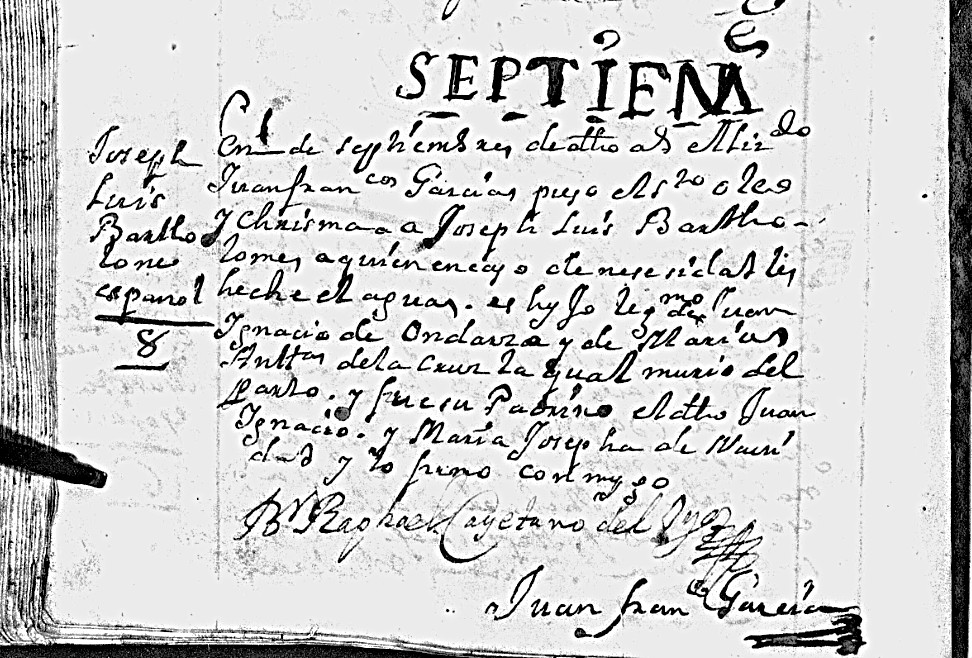 SEPTIEMe
Joseph
Luis
Bartho
lome
español
8
En 1 de septiembres de dho as el Lizdo
Juan francos Garcias puso el sto oleo
y chrisma a Joseph Luis Bartho-
lomes a quien en caso de nesesidad les
heche el aguas. es hyjo legmo de Juan
Ignacio de Ondarza y de Marias
Anttas de la Cruz la qual murio del
parto. y fue su Padrino el dho Juan
Ignacio. y Maria Josepha de
dad y lo firmo conmygo
Br Raphael Cayetano del
Juan franco Garcia